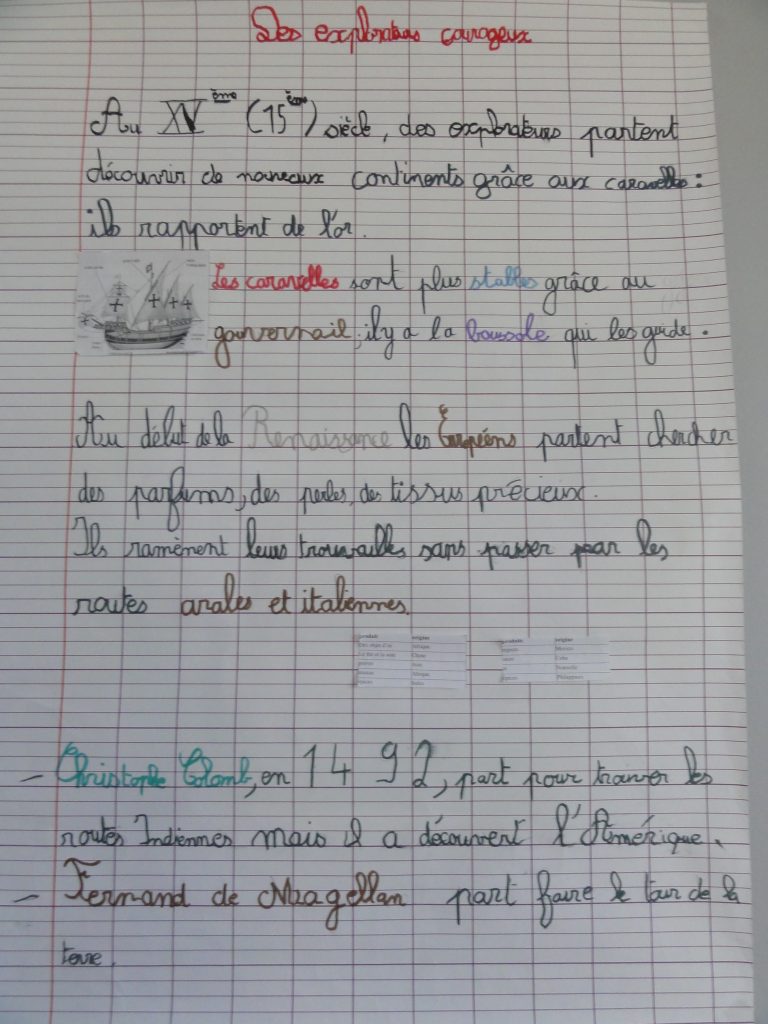 Des explorateurs courageux
Au XVème (15ème) siècle, des explorateurs partent
découvrir de nouveaux continents grâce aux caravelles :
ils rapportent de l'or.
Les caravelles sont plus stables grâce au
gouvernail ; il y a la boussole qui les guide.
Au début de la Renaissance les Européens partent chercher
des parfums, des perles, des tissus précieux.
Ils ramènent leurs trouvailles sans passer par les
routes arabes et italiennes.
produits origine
produits origine
- Christophe Colomb, en 1492, part pour trouver les
routes Indiennes mais il a découvert l'Amérique.
- Fernand de Magellan part faire le tour de la
terre.